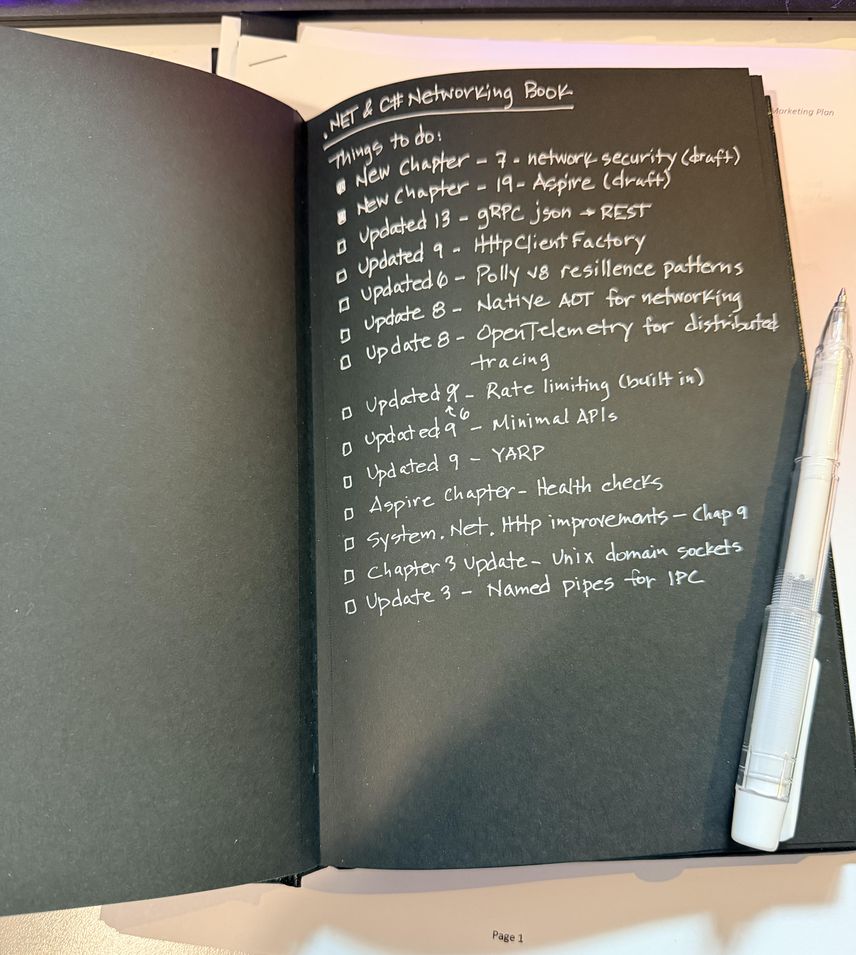 Marketing Plan
.NET & C# Networking Book
Things to do:
New Chapter - 7 - network security (draft)
New Chapter - 19 - Aspire (draft)
Updated 13 - gRPC json → REST
Updated 9 - HttpClientFactory
Updated 6 - Polly v8 resillence patterns
Update 8 - Native AOT for networking
Update 8 - OpenTelemetry for distributed
tracing
Updated - Rate limiting (built in)
↑6
Updated 9 - Minimal APIs
Updated 9 - YARP
Aspire Chapter - Health checks
System.Net.Http improvements - Chap 9
Chapter 3 Update - Unix domain sockets
Update 3 - Named pipes for IPC
Page 1